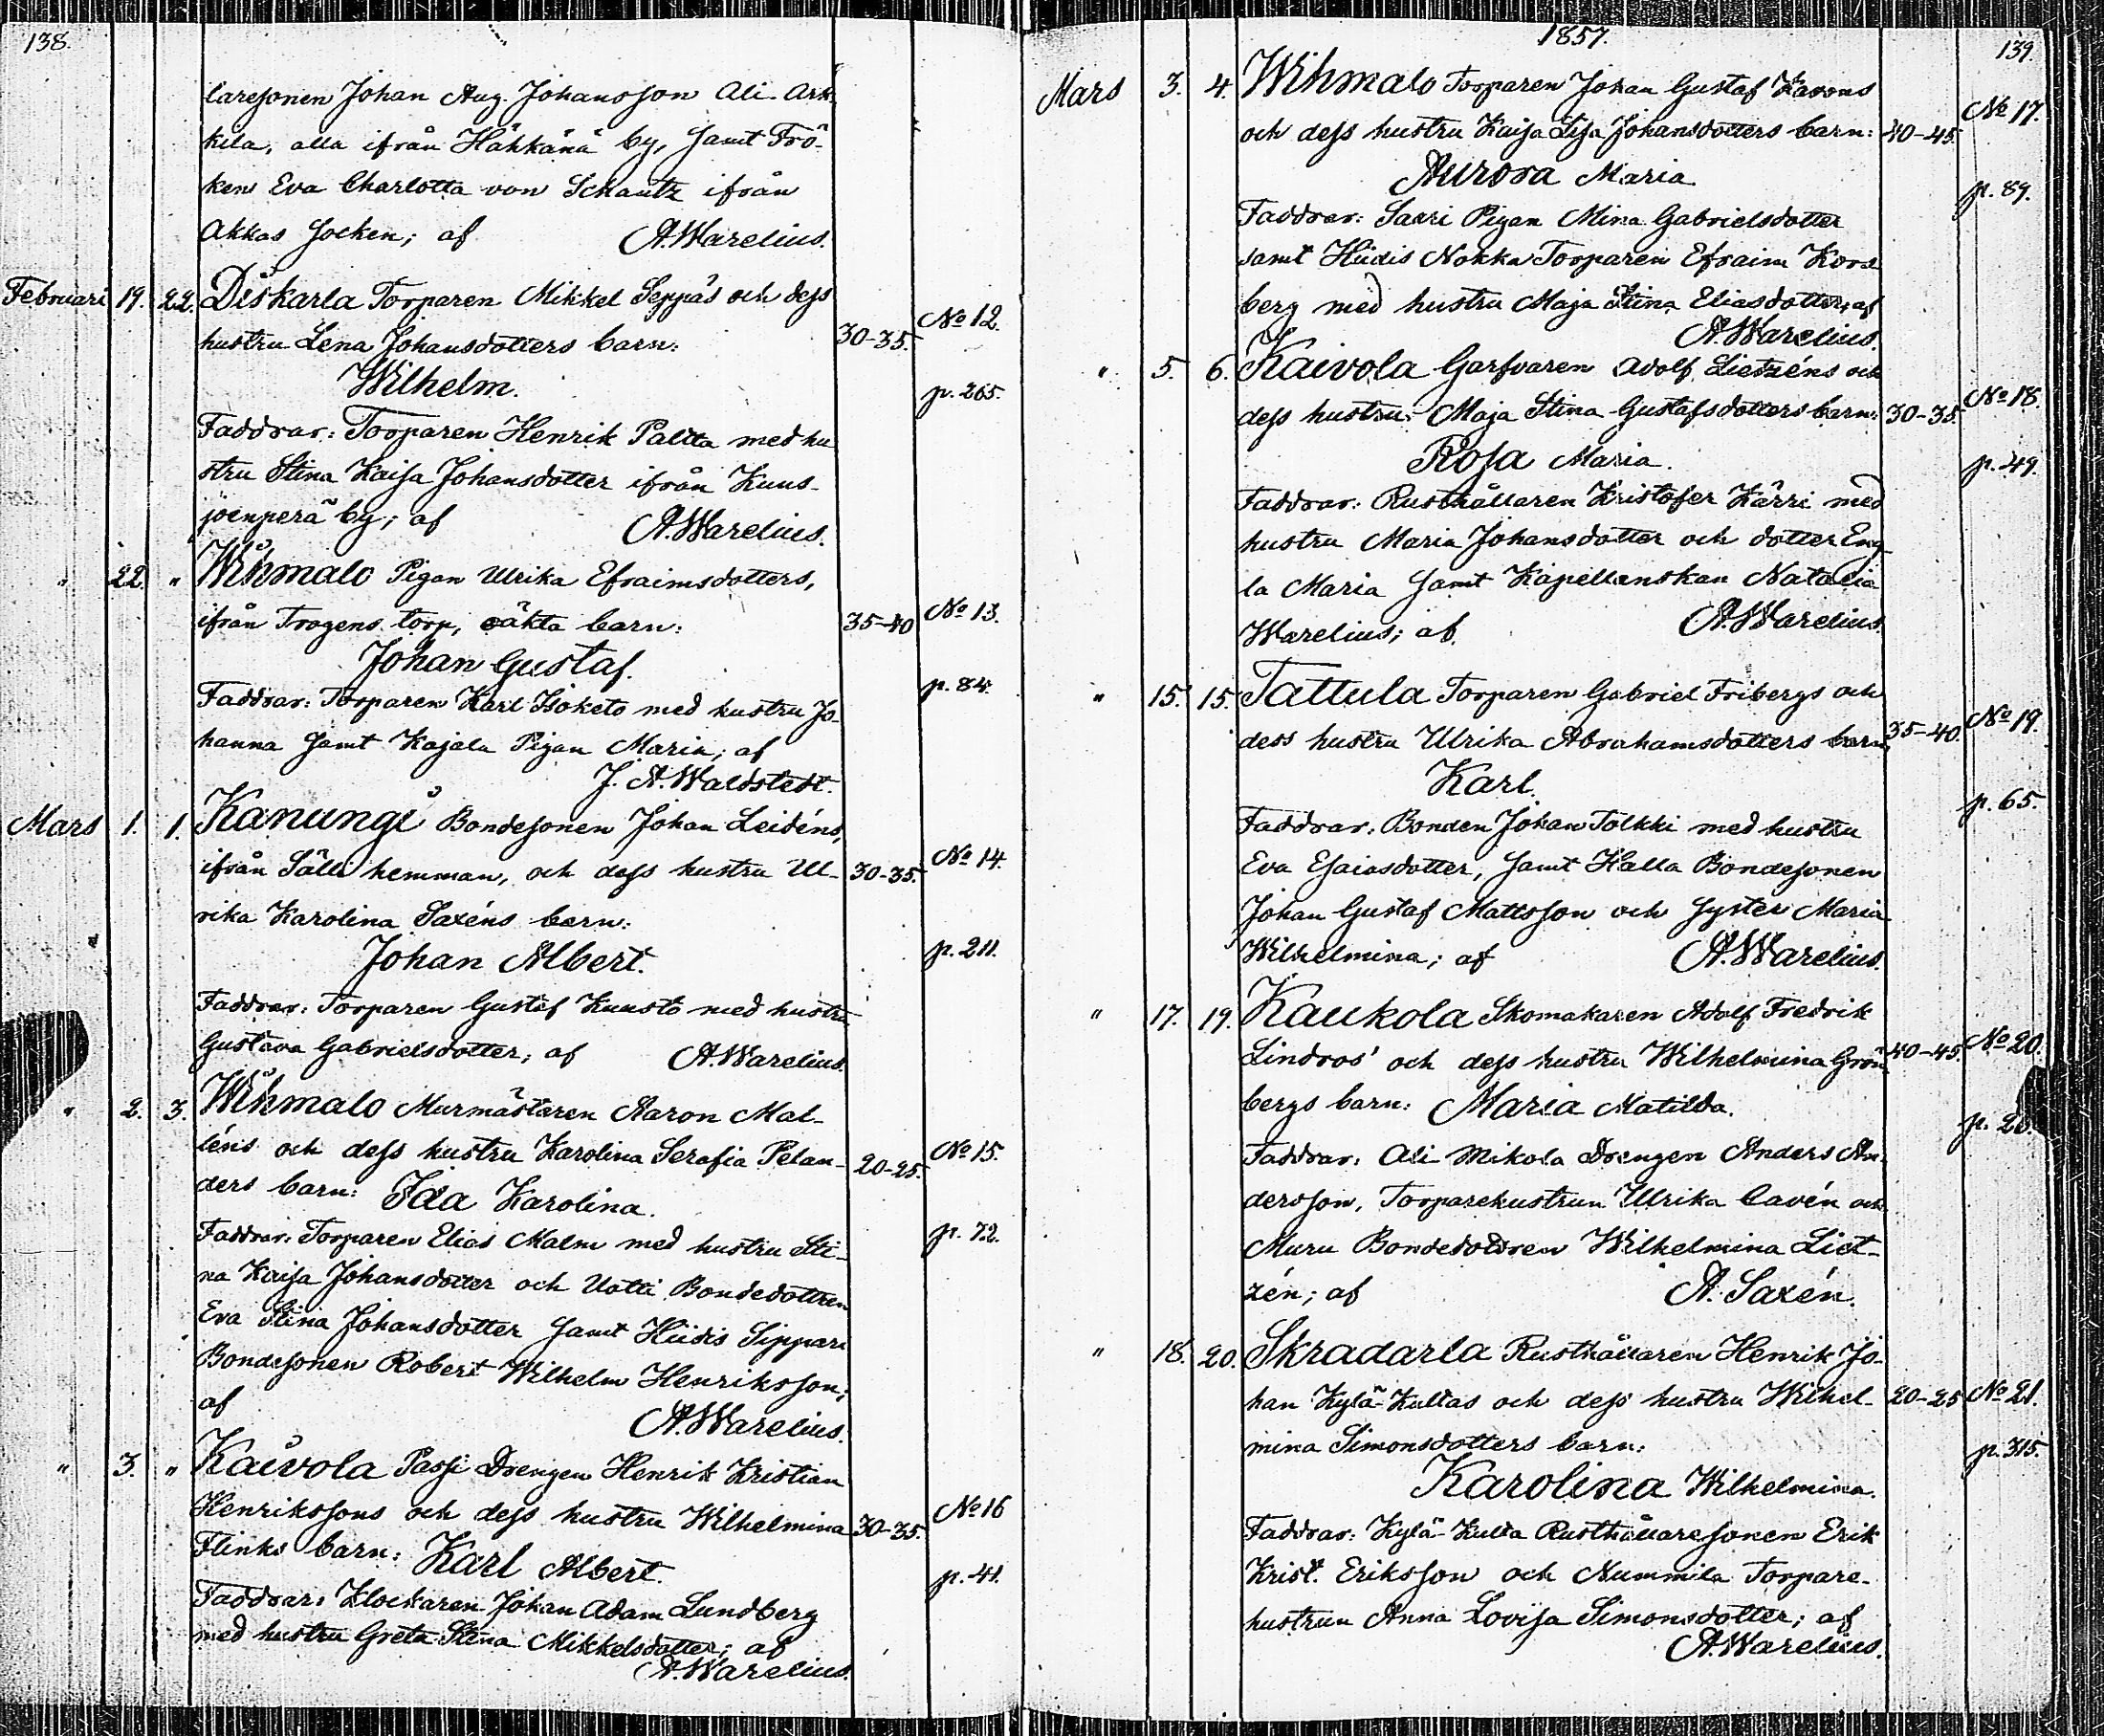 138.
laresonen Johan Aug. Johansson Ali-Ark-
kila, alla ifrån Häkkänä by, samt Frö-
ken Eva Charlotta von Schantz ifrån
Akkas socken; af A. Warelius.
Februari 19. 22. Diskarla Torparen Mikkel Seppäs och dess
hustru Lena Johansdotters barn: 30-35. No 12.
Wilhelm. p. 265.
Faddrar: Torparen Henrik Paltta med hu
stru Stina Kaisa Johansdotter ifrån Kuus-
joenperä by; af A. Warelius.
" 22. " Wihmalo Pigan Ulrika Efraimsdotters,
ifrån Trogens torp, oäkta barn: 35-40 No 13.
Johan Gustaf. p. 84.
Faddrar: Torparen Karl Isoketo med hustru Jo-
hanna samt Kajala Pigan Maria; af
J. A. Waldstedt.
Mars 1. 1. Kanungi Bondesonen Johan Leidéns,
ifrån Sälli hemman, och dess hustru Ul- 30-35. No 14.
rika Karolina Saxéns barn:
Johan Albert. p. 211.
Faddrar: Torparen Gustaf Kuusto med hustru
Gustava Gabrielsdotter; af A. Warelius.
" 2. 3. Wihmalo Murmästaren Aaron Mal-
léns och dess hustru Karolina Serafia Pelan- 20-25. No 15.
ders barn: Ida Karolina.
Faddrar: Torparen Elias Malm med hustru Sti- p. 72.
na Kaisa Johansdotter och Uotti Bondedottren
Eva Stina Johansdotter samt Hiidis Sippari
Bondesonen Robert Wilhelm Henriksson;
af A. Warelius.
" 3. " Kaivola Passi Drengen Henrik Kristian
Henrikssons och dess hustru Wilhelmina 30-35. No 16
Flinks barn: Karl Albert. p. 41.
Faddrar: Klockaren Johan Adam Lundberg
med hustru Greta Stina Mikkelsdotter; af
A. Warelius.
1857. 139.
Mars 3. 4. Wihmalo Torparen Johan Gustaf Karons
och dess hustru Kaisa Lisa Johansdotters barn: 40-45. No 17.
Aurora Maria. p. 89.
Faddrar: Saxri Pigan Mina Gabrielsdotter
samt Hiidis Nokka Torparen Efraim Kors
berg med hustru Maja Stina Eliasdotter; af
A. Warelius.
" 5. 6. Kaivola Garfvaren Adolf Lietzéns och
dess hustru Maja Stina Gustafsdotters barn: 30-35. No 18.
Rosa Maria. p. 49.
Faddrar: Rusthållaren Kristofer Kärri med
hustru Maria Johansdotter och dotter Eng-
la Maria samt Kapellanskan Natalia
Warelius; af A. Warelius.
" 15. 15. Tattula Torparen Gabriel Fribergs och
dess hustru Ulrika Abrahamsdotters barn: 35-40. No 19.
Karl. p. 65.
Faddrar: Bonden Johan Tolkki med hustru
Eva Esaiasdotter, samt Halla Bondesonen
Johan Gustaf Mattsson och syster Maria
Wilhelmina; af A. Warelius.
" 17. 19. Kaukola Skomakaren Adolf Fredrik
Lindros' och dess hustru Wilhelmina Grön- 40-45. No 20.
bergs barn: Maria Matilda.
Faddrar: Ali-Mikola Drengen Anders An-
dersson, Torparehustrun Ulrika Cavén och
Muru Bondedottren Wilhelmina Liet-
zén; af A. Saxén.
" 18. 20. Skradarla Rusthållaren Henrik Jo-
han Kylä-Kultas och dess hustru Wilhel- 20-25 No 21.
mina Simonsdotters barn: p. 315.
Karolina Wilhelmina.
Faddrar: Kylä-Kulta Rusthållaresonen Erik
Krist. Eriksson och Nummila Torpare-
hustrun Anna Lovisa Simonsdotter; af
A. Warelius.